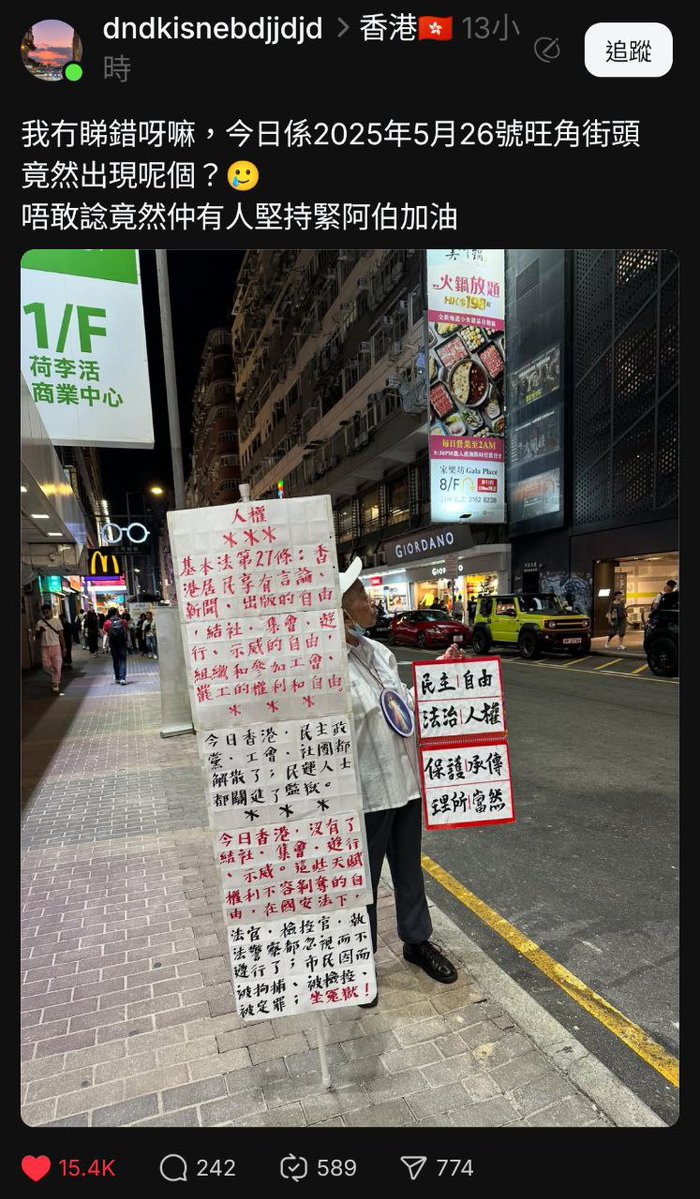 dndkisnebdjjdjd > 香港🇭🇰 13小時
追蹤
我冇睇錯呀嘛，今日係2025年5月26號旺角街頭
竟然出現呢個？🥲
唔敢諗竟然仲有人堅持緊阿伯加油
1/F
荷李活
商業中心
火鍋放題
HK$198
每日營業至2AM
家樂坊 Gala Place
8/F
GIORDANO
人權
***
基本法第27條：香
港居民享有言論、
新聞、出版的自由
，結社、集會、遊
行、示威的自由，
組織和參加工會、
罷工的權利和自由。
* * *
今日香港，民主政
黨、工會、社團都
解散了；民運人士
都關進了監獄。
* * *
今日香港，沒有了
結社、集會、遊行
、示威。這些天賦
權利不容剥奪的自
由，在國安法下，
法官、檢控官、執
法警察都忽視而不
遵行了；市民因而
被拘捕、被檢控、
被定罪；坐冤獄！
民主|自由
法治|人權
保護|承傳
理所|當然
15.4K
242
589
774